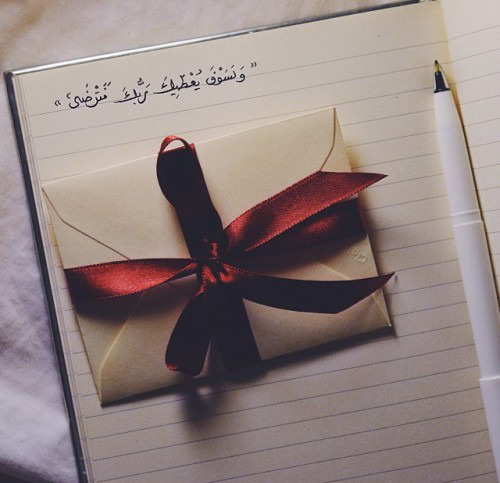 « وَلَسَوْفَ يُعْطِيكَ رَبُّكَ فَتَرْضَىٰ »